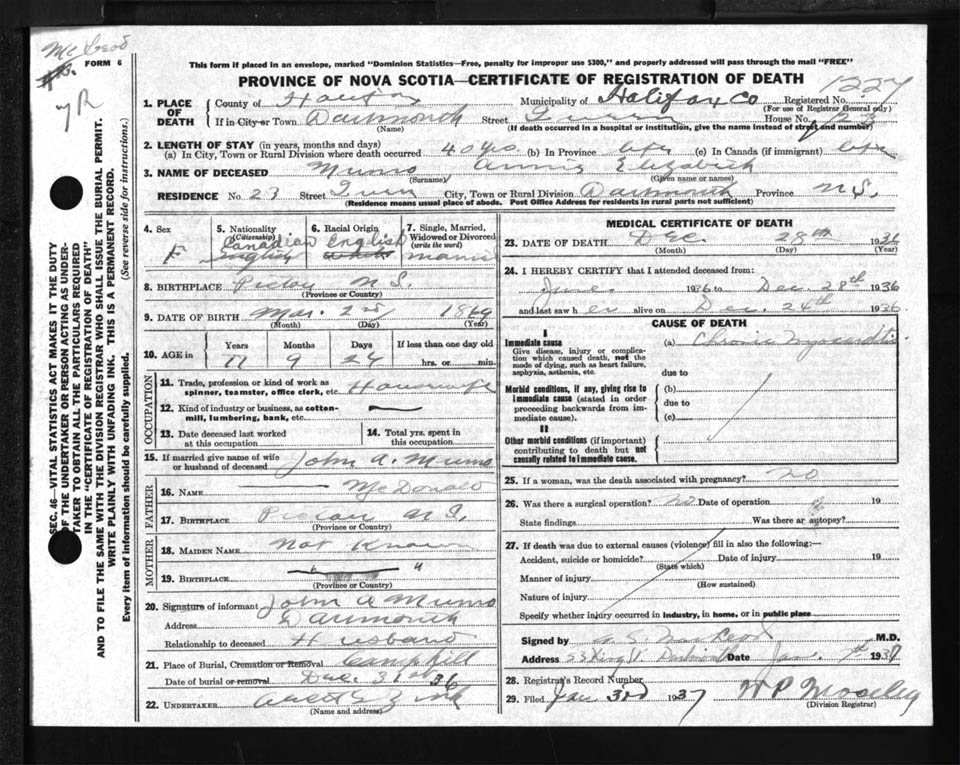 McLeod
FORM 6
7R
This form if placed in an envelope, marked "Dominion Statistics—Free, penalty for improper use $300," and properly addressed will pass through the mail "FREE"
PROVINCE OF NOVA SCOTIA—CERTIFICATE OF REGISTRATION OF DEATH
1227
1. PLACE OF DEATH
County of Halifax Municipality of Halifax Co Registered No.
(For use of Registrar General only)
If in City or Town Dartmouth Street House No. 23
(Name) (If death occurred in a hospital or institution, give the name instead of street and number)
2. LENGTH OF STAY (in years, months and days)
(a) In City, Town or Rural Division where death occurred 40 yrs. (b) In Province life (c) In Canada (if immigrant) life
3. NAME OF DECEASED Munro Annie Elizabeth
(Surname) (Given name or names)
RESIDENCE No. 23 Street City, Town or Rural Division Dartmouth Province N.S.
(Residence means usual place of abode. Post Office Address for residents in rural parts not sufficient)
4. Sex 5. Nationality (Citizenship) 6. Racial Origin 7. Single, Married, Widowed or Divorced (write the word)
F Canadian English English White Married
8. BIRTHPLACE Pictou N S.
(Province or Country)
9. DATE OF BIRTH Mar. 2nd 1869
(Month) (Day) (Year)
10. AGE in Years Months Days If less than one day old
77 9 24 hrs. or min.
OCCUPATION
11. Trade, profession or kind of work as spinner, teamster, office clerk, etc. Housewife
12. Kind of industry or business, as cotton-mill, lumbering, bank, etc. —
13. Date deceased last worked at this occupation
14. Total yrs. spent in this occupation
15. If married give name of wife or husband of deceased John A. Munro
FATHER
16. NAME McDonald
17. BIRTHPLACE Pictou N.S.
(Province or Country)
MOTHER
18. MAIDEN NAME Not Known
19. BIRTHPLACE " "
(Province or Country)
20. Signature of informant John A Munro
Address Dartmouth
Relationship to deceased Husband
21. Place of Burial, Cremation or Removal Camp Hill
Date of burial or removal Dec. 31st 36
22. UNDERTAKER
(Name and address)
MEDICAL CERTIFICATE OF DEATH
23. DATE OF DEATH Dec. 28th 1936
(Month) (Day) (Year)
24. I HEREBY CERTIFY that I attended deceased from:
June 1936 to Dec. 28th 1936
and last saw her alive on Dec. 24th 1936
CAUSE OF DEATH
I
Immediate cause (a) Chronic Myocarditis
Give disease, injury or complication which caused death, not the mode of dying, such as heart failure, asphyxia, asthenia, etc.
due to
Morbid conditions, if any, giving rise to immediate cause (stated in order proceeding backwards from immediate cause).
(b)
due to
(c)
II
Other morbid conditions (if important) contributing to death but not causally related to immediate cause.
25. If a woman, was the death associated with pregnancy? no
26. Was there a surgical operation? no Date of operation 19
State findings Was there an autopsy?
27. If death was due to external causes (violence) fill in also the following:—
Accident, suicide or homicide? Date of injury 19
(State which)
Manner of injury
(How sustained)
Nature of injury
Specify whether injury occurred in industry, in home, or in public place
Signed by M.D.
Address 53 King St Dartmouth Date Jan. 1937
28. Registrar's Record Number
29. Filed Jan 3rd 1937 W P Moseley
(Division Registrar)
SEC. 46—VITAL STATISTICS ACT MAKES IT THE DUTY
OF THE UNDERTAKER OR PERSON ACTING AS UNDER-
TAKER TO OBTAIN ALL THE PARTICULARS REQUIRED
IN THE "CERTIFICATE OF REGISTRATION OF DEATH"
AND TO FILE THE SAME WITH THE DIVISION REGISTRAR WHO SHALL ISSUE THE BURIAL PERMIT.
WRITE PLAINLY WITH UNFADING INK. THIS IS A PERMANENT RECORD.
Every item of information should be carefully supplied. (See reverse side for instructions.)